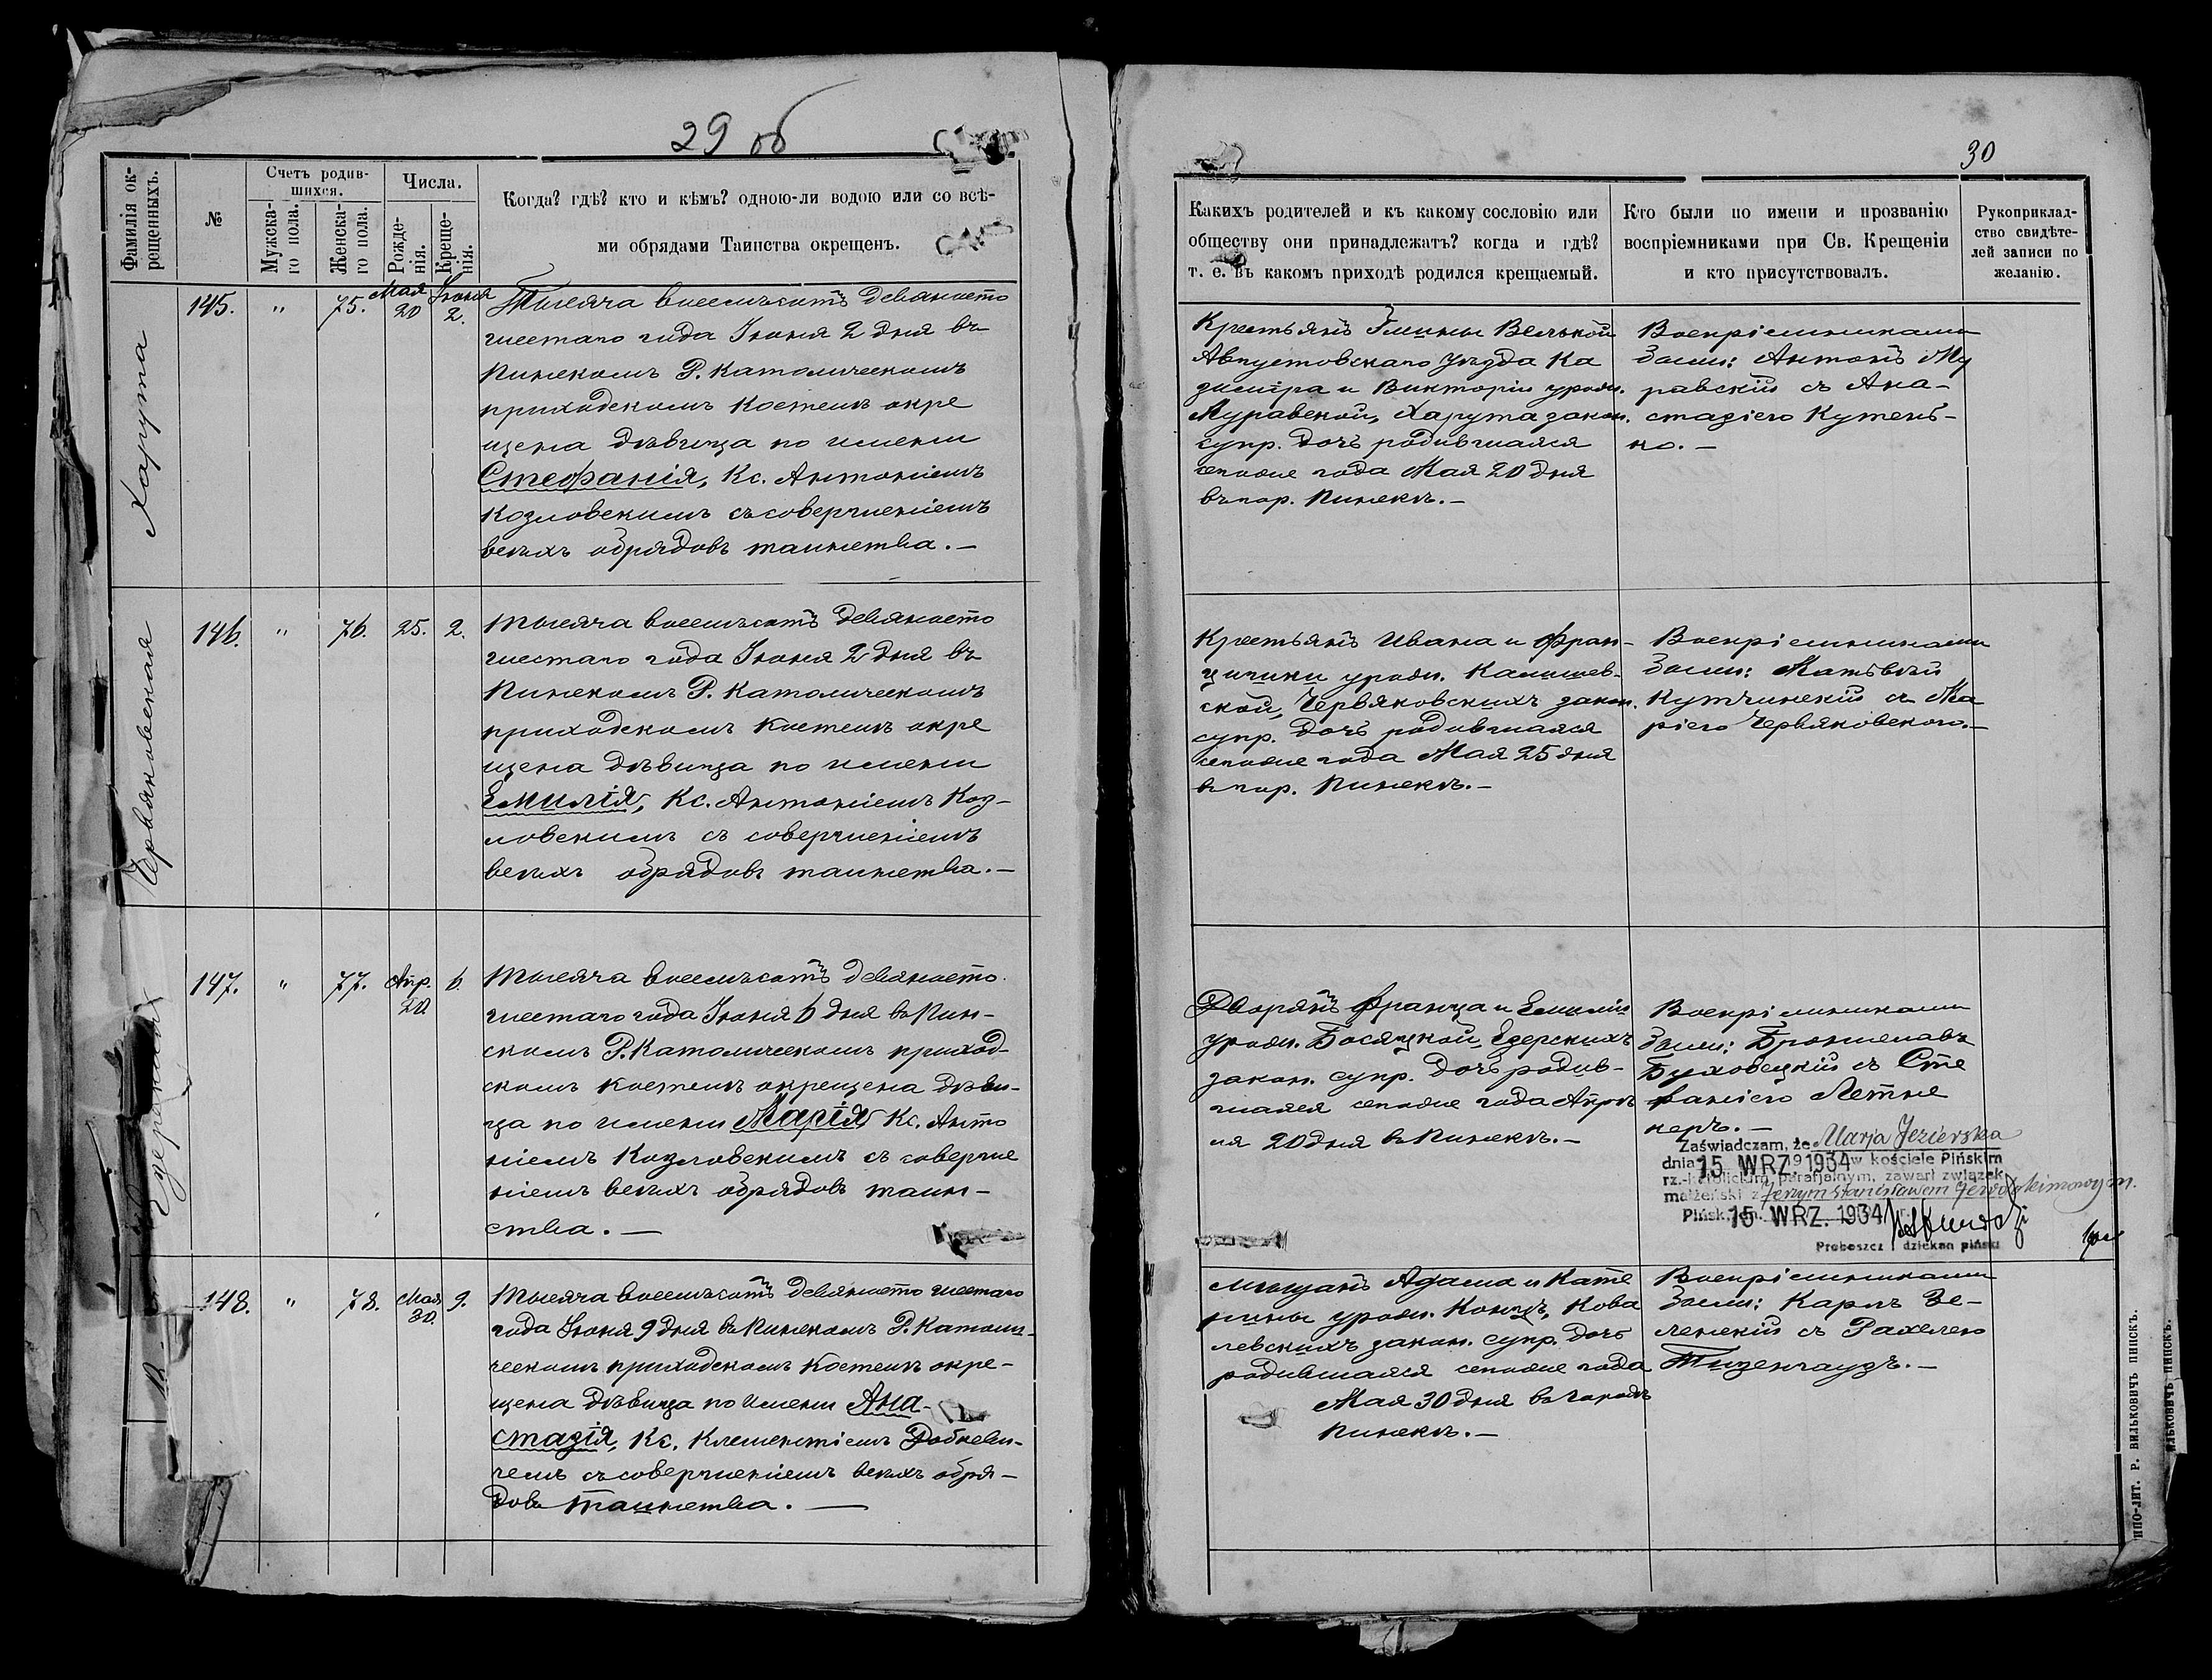 29 об
Фамилія ок-
рещенныхъ.
№
Счетъ родив-
шихся.
Мужска-
го пола.
Женска-
го пола.
Числа.
Рожде-
нія.
Креще-
нія.
Когда? гдѣ? кто и кѣмъ? одною-ли водою или со всѣ-
ми обрядами Таинства окрещенъ.
Харута
145.
"
75.
Мая
20
Іюня
2.
Тысяча восемьсотъ девяносто
шестаго года Іюня 2 дня въ
Пинскомъ Р. Католическомъ
приходскомъ костелѣ окре
щена дѣвица по имени
Стефанія, Кс. Антоніемъ
Козловскимъ съ совершеніемъ
всѣхъ обрядовъ таинства. —
Червяковская
146.
"
76.
25.
2.
Тысяча восемьсотъ девяносто
шестаго года Іюня 2 дня въ
Пинскомъ Р. Католическомъ
приходскомъ костелѣ окре
щена дѣвица по имени
Емилія, Кс. Антоніемъ Коз-
ловскимъ съ совершеніемъ
всѣхъ обрядовъ таинства. —
147.
"
77.
Апр.
20
6.
Тысяча восемьсотъ девяносто
шестаго года Іюня 6 дня въ Пин-
скомъ Р. Католическомъ приход-
скомъ костелѣ окрещена дѣви-
ца по имени Марія, Кс. Анто
ніемъ Козловскимъ съ соверше
ніемъ всѣхъ обрядовъ таин-
ства. —
148.
"
78.
Мая
30.
9.
Тысяча восемьсотъ девяносто шестаго
года Іюня 9 дня въ Пинскомъ Р. Католи-
ческомъ приходскомъ костелѣ окре-
щена дѣвица по имени Ана-
стазія, Кс. Клементіемъ Добкеви-
чемъ съ совершеніемъ всѣхъ обря-
довъ таинства. —
30
Какихъ родителей и къ какому сословію или
обществу они принадлежатъ? когда и гдѣ?
т. е. въ какомъ приходѣ родился крещаемый.
Кто были по имени и прозванію
воспріемниками при Св. Крещеніи
и кто присутствовалъ.
Рукоприклад-
ство свидѣте-
лей записи по
желанію.
Крестьянъ Гмины Велькой
Августовскаго уѣзда Ка
зиміра и Викторіи урожд.
Муравской, Харута закон.
супр. дочь родившаяся
сегоже года Мая 20 дня
въ гор. Пинскѣ. —
Воспріемниками
были: Антонъ Му
равскій съ Ана-
стазіею Кутень-
ко. —
Крестьянъ Ивана и Фран-
цишки урожд.
ской, Червяковскихъ закон.
супр. дочь родившаяся
сегоже года Мая 25 дня
въ гор. Пинскѣ. —
Воспріемниками
были: Матвѣй
Кутчинскій съ Ма
ріею Червяковскою. —
Дворянъ Франца и Емиліи
урожд. Босяцкой, Езерскихъ
закон. супр. дочь родив-
шаяся сегоже года Апрѣ
ля 20 дня въ Пинскѣ. —
Воспріемниками
были: Брониславъ
Буховецкій съ Сте
фаніею Летне
керъ. —
Zaświadczam, że Marja Jezierska
dnia 15 WRZ. 1934 w kościele Pińskim
rz.-katolickim parafjalnym, zawarł związek
małżeński z Jerzym Stanisławem
Pińsk, dn. 15 WRZ. 1934 r.
Proboszcz i dziekan piński
Мѣщанъ Адама и Кате
рины урожд. Концъ, Кова
левскихъ закон. супр. дочь
родившаяся сегоже года
Мая 30 дня въ городѣ
Пинскѣ. —
Воспріемниками
были: Карлъ Зе-
ленскій съ Рахелею
Тизенгаузъ. —
ИПО-ЛИТ. Р. ВИЛЬКОВИЧЪ ПИНСКЪ.
ИЛЬКОВИЧЪ ПИНСКЪ.